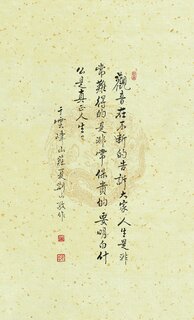 觀音在不斷的告訴大家人生是非
常難得的是非常保貴的要明白什
么是真正人生
于雲峰山莊夏荆山敬作